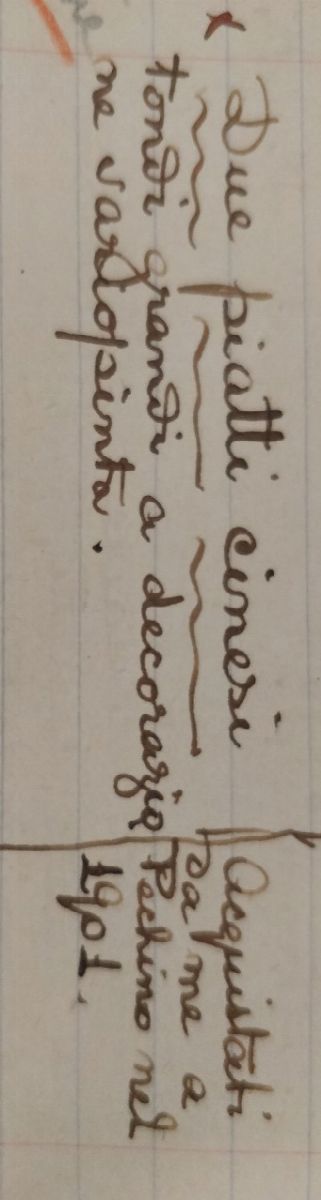 Due piatti cinesi
tondi grandi a decorazio
ne variopinta.
Acquistati
da me a
Pechino nel
1901.